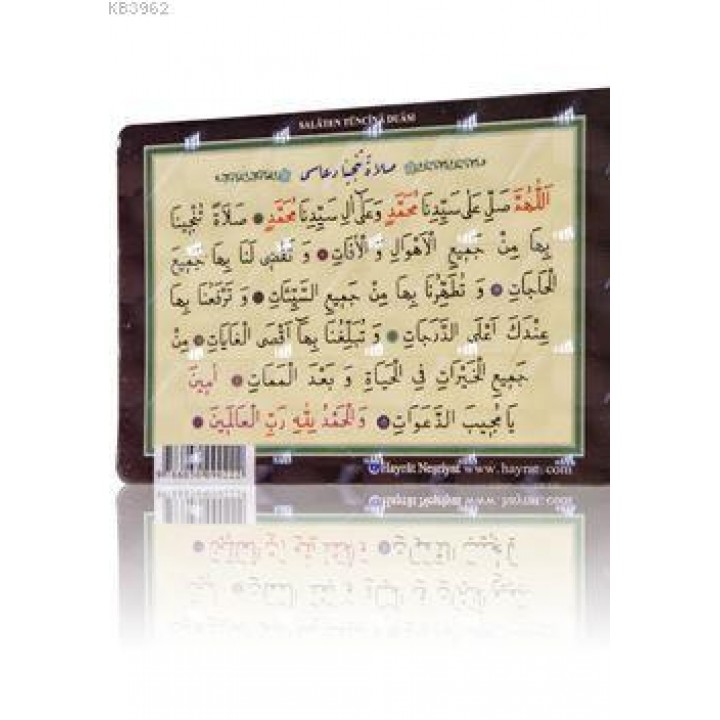 KB3962
SALÂTEN TÜNCÎNÂ DUÂSI
صلاة تنجينا دعاسى
اَللّٰهُمَّ صَلِّ عَلٰى سَيِّدِنَا مُحَمَّدٍ وَعَلٰٓى اٰلِ سَيِّدِنَا مُحَمَّدٍ صَلَاةً تُنْجِينَا
بِهَا مِنْ جَمِيعِ الْاَهْوَالِ وَ الْاٰفَاتِ وَ تَقْضِى لَنَا بِهَا جَمِيعَ
الْحَاجَاتِ وَ تُطَهِّرُنَا بِهَا مِنْ جَمِيعِ السَّيِّئَاتِ وَ تَرْفَعُنَا بِهَا
عِنْدَكَ اَعْلَى الدَّرَجَاتِ وَ تُبَلِّغُنَا بِهَٓا اَقْصَى الْغَايَاتِ مِنْ
جَمِيعِ الْخَيْرَاتِ فِى الْحَيَاةِ وَ بَعْدَ الْمَمَاتِ اٰمِينَ
يَا مُجِيبَ الدَّعَوَاتِ وَالْحَمْدُ لِلّٰهِ رَبِّ الْعَالَمِينَ
Hayrât Neşriyat www.hayrat.com